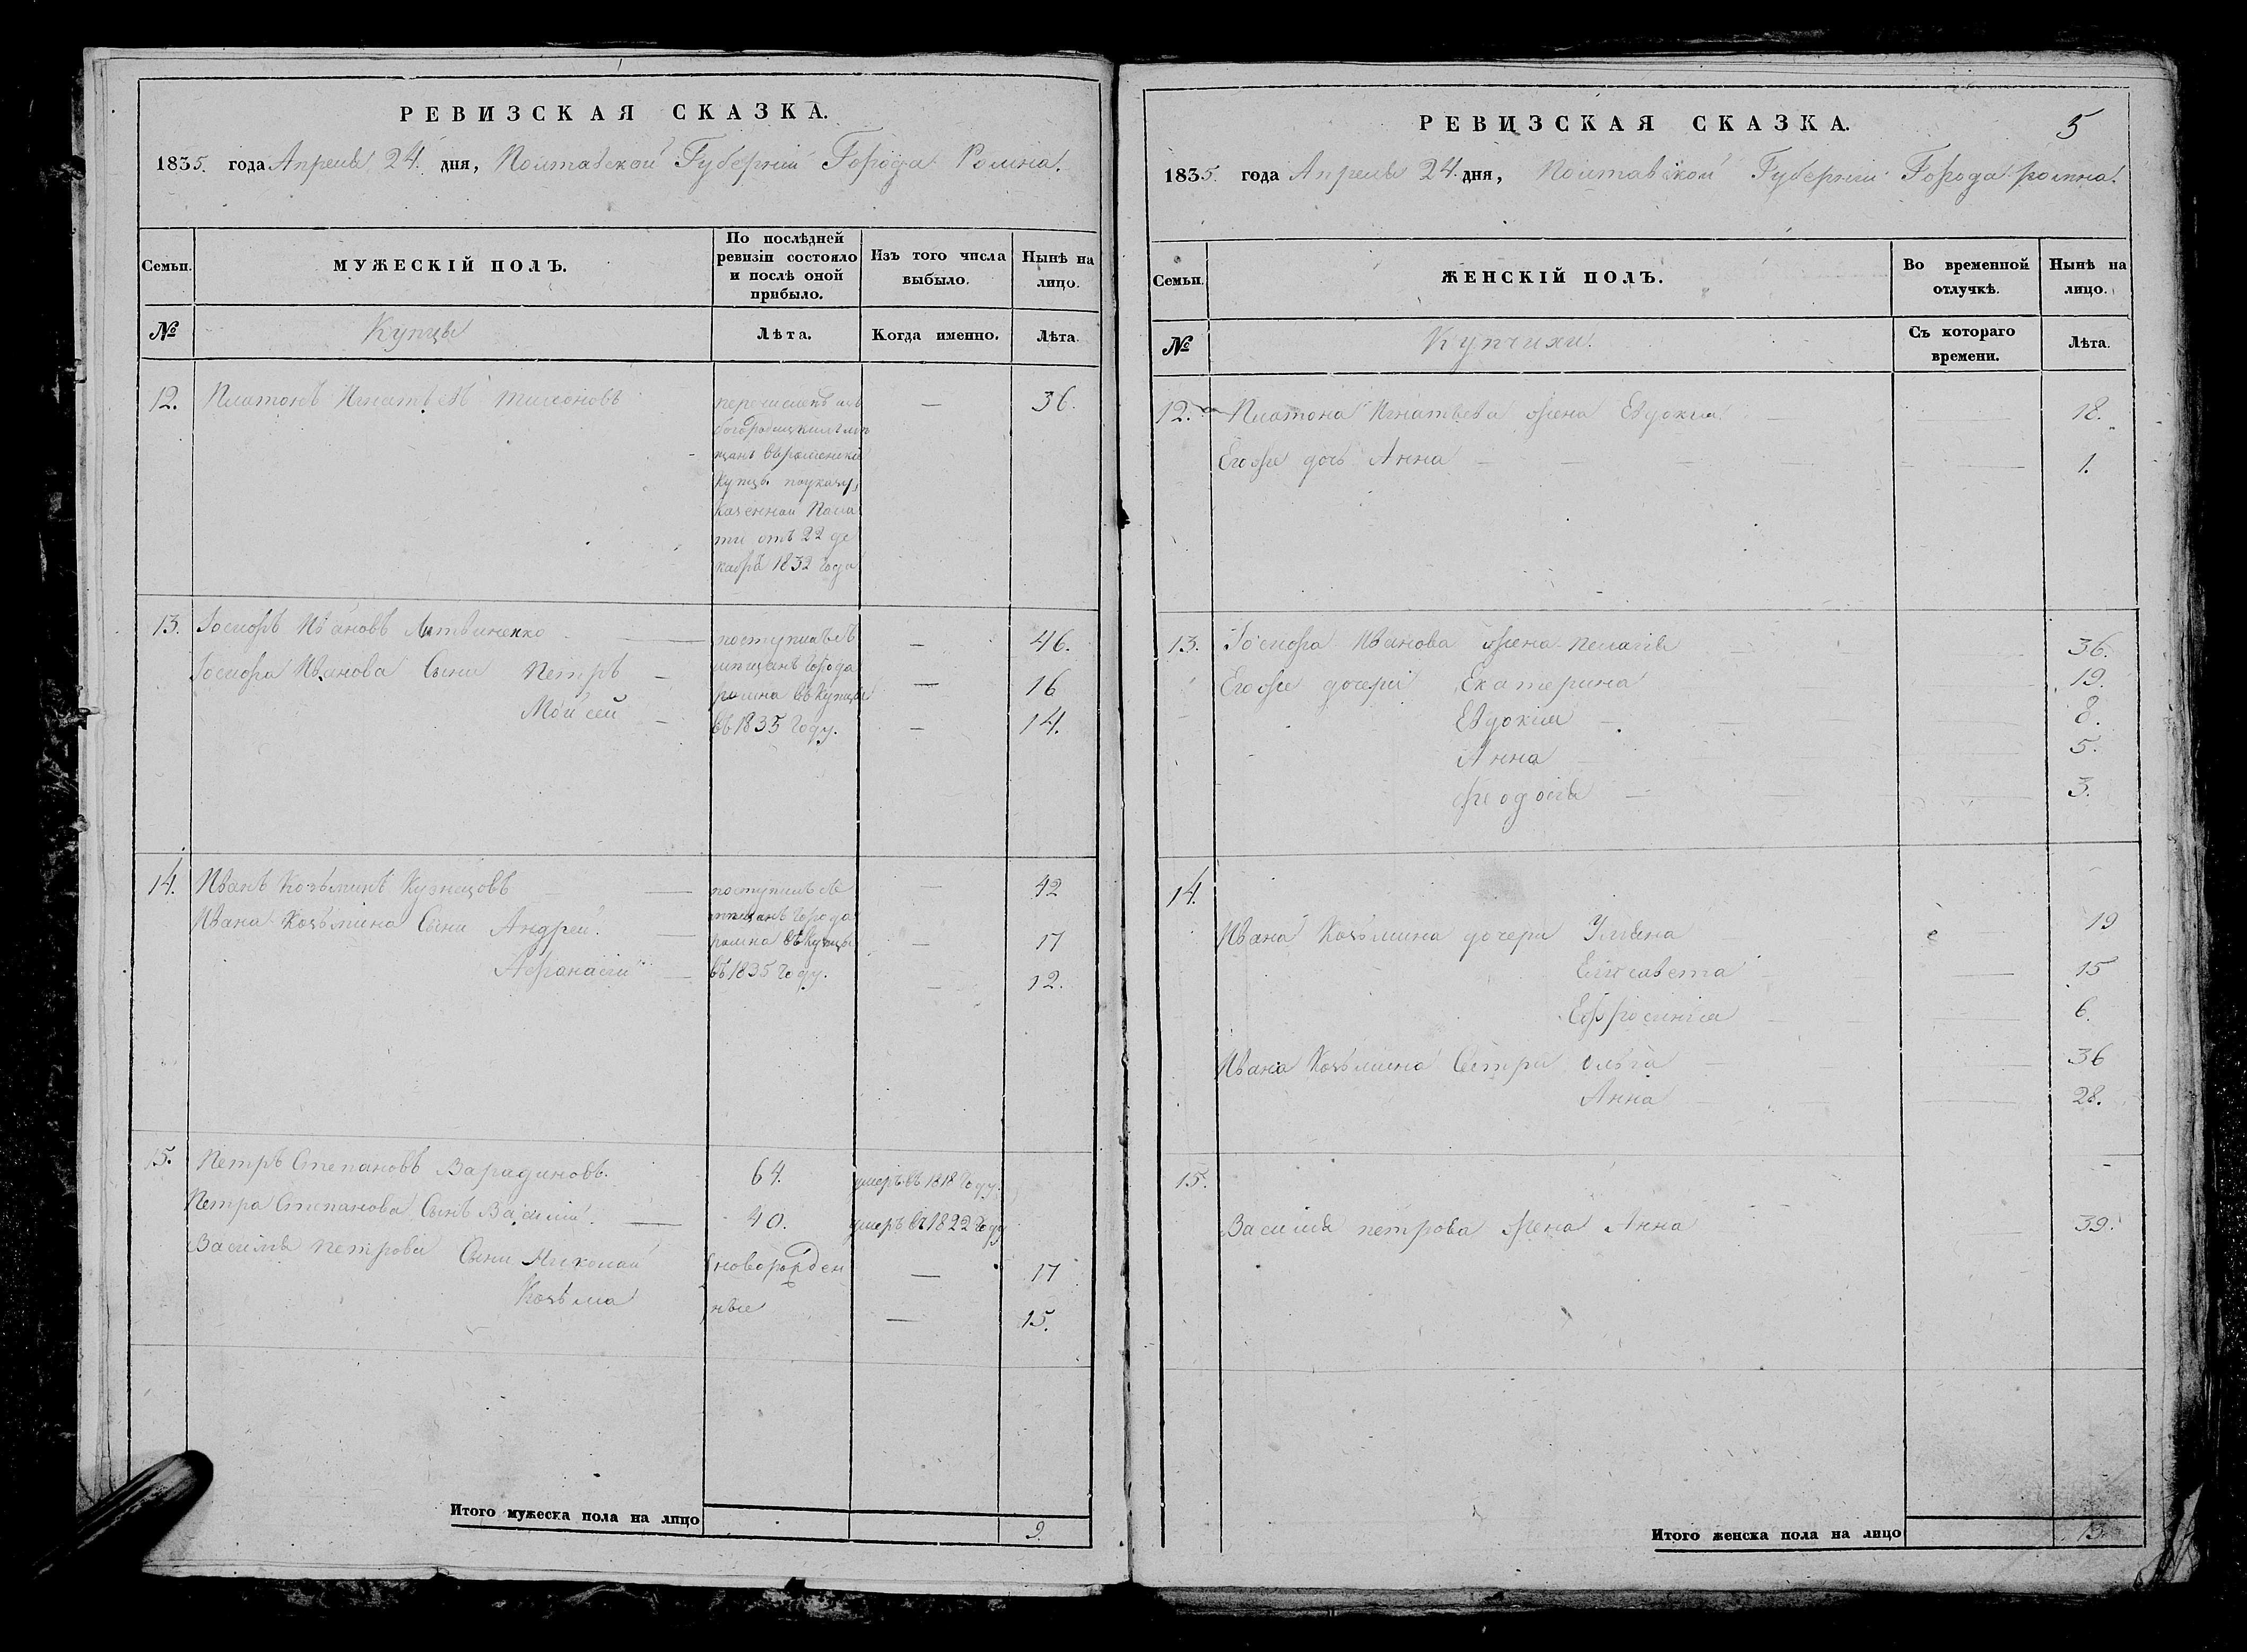 РЕВИЗСКАЯ СКАЗКА.
1835. года Апреля 24. дня, Полтавской Губернiи Города Ромна.
Семьи.
МУЖЕСКIЙ ПОЛЪ.
По послѣдней ревизiи состояло и послѣ оной прибыло.
Изъ того числа выбыло.
Нынѣ на лицо.
№
Купцы
Лѣта.
Когда именно.
Лѣта.
12. Платонъ Игнатьевъ — 36.
перечисленъ изъ
щанъ въ роменскiе
Купцы по указу,
Казенной Пала
ты отъ 22 де
кабря 1832 года
13. Iосифъ Ивановъ Литвиненко — поступилъ съ — 46.
Iосифа Иванова Сыни Петръ — мещанъ города — 16
ромна въ купцы
Мойсей — въ 1835 году. — 14.
14. Иванъ Козьминъ Кузнецовъ — поступилъ съ — 42
Ивана Козьмина Сыни Андрей. — мещанъ города
ромна въ купцы — 17
Афанасiй — въ 1835 году. — 12.
15. Петръ Степановъ Варадиновъ. 64. умеръ въ 1818 году.
Петра Степанова Сынъ Василiй. — 40. умеръ въ 1822 году
Василiя петрова Сыни Николай новорожден — 17
Козьма ные — 15.
Итого мужеска пола на лицо 9.
РЕВИЗСКАЯ СКАЗКА.
5
1835. года Апреля 24. дня, Полтавской Губернiи Города ромна.
Семьи.
ЖЕНСКIЙ ПОЛЪ.
Во временной отлучкѣ.
Нынѣ на лицо.
№
Купчихи.
Съ котораго времени.
Лѣта.
12. Платона Игнатьева жена Евдокия — 18.
Его же дочь Анна — 1.
13. Iосифа Иванова жена Пелагiя — 36.
Его же дочери Екатерина 19.
Евдокия — 8.
Анна — 5.
Феодосiя — 3.
14.
Ивана Козьмина дочери Улияна 19
Елисавета — 15
Ефросинiя — 6.
Ивана Козьмина Сестри Ольга — 36
Анна — 28.
15.
Василiя петрова жена Анна — 39.
Итого женска пола на лицо 13.